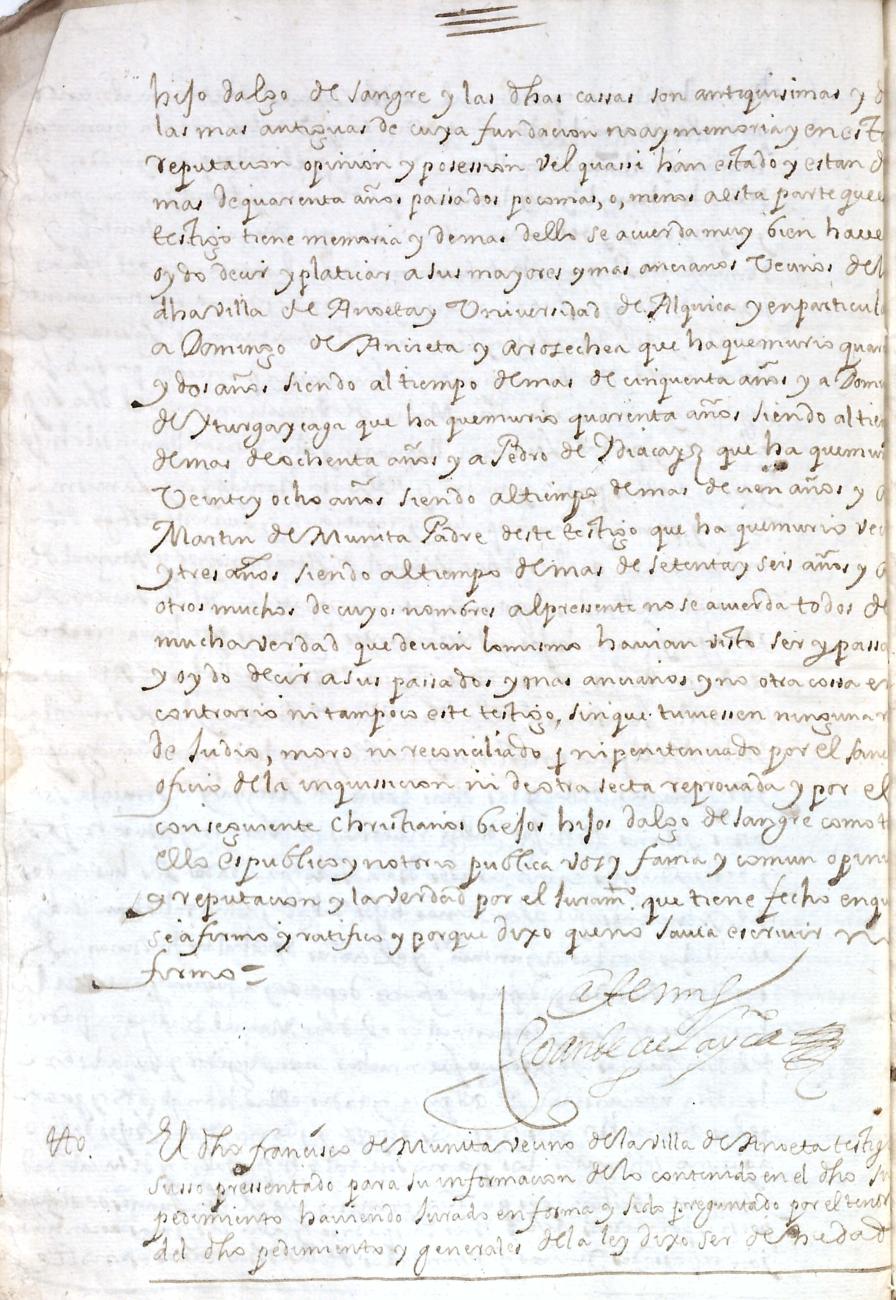 hijo dalgo de sangre y las dhas cassas son antiquisimas y d
las mas antiguas de cuya fundacion no ay memoria y en est
reputacion opinion y posession vel quassi han estado y estan d
mas de quarenta años passados poco mas, o, menos a esta parte que
testigo tiene memoria y demas dello se acuerda muy bien have
oydo decir y platicar a sus mayores y mas ancianos Vecinos de
dha villa de Anoeta y Universidad de Alquiça y en particul
a Domingo de Ancieta y Arosechea que ha que murio quar
y dos años siendo al tiempo de mas de cinquenta años y a Dom
de Yturgaycaga que ha que murio quarenta años siendo al tie
de mas de ochenta años y a Pedro de que ha que mu
Veinte y ocho años siendo al tiempo de mas de cien años y a
Martin de Munita Padre deste testigo que ha que murio ve
y tres años siendo al tiempo de mas de setenta y seis años y a
otros muchos de cuyos nombres al pressente no se acuerda todos de
mucha verdad que decian lo mismo havian visto ser y passa
y oydo decir a sus passados y mas ancianos y no otra cossa en
contrario ni tampoco este testigo, sin que tuviessen ninguna r
de Judio, moro ni reconciliado ni penitenciado por el san
oficio de la inquissicion ni de otra secta reprovada y por el
conseguiente Christianos biejos hijos dalgo de sangre como t
ello es publico y notorio publica voz y fama y comun opini
y reputacion y la verdad por el Juramto. que tiene fecho en qu
se afirmo y ratifico y porque dixo que no savia escrivir n
firmo =
Ante mi
to. El dho francisco de Munita vecino de la villa de Anoeta testig
susso pressentado para su informacion de lo contenido en el dho
pedimiento haviendo Jurado en forma y sido preguntado por el teno
del dho pedimiento y generales de la ley dixo ser de hedad